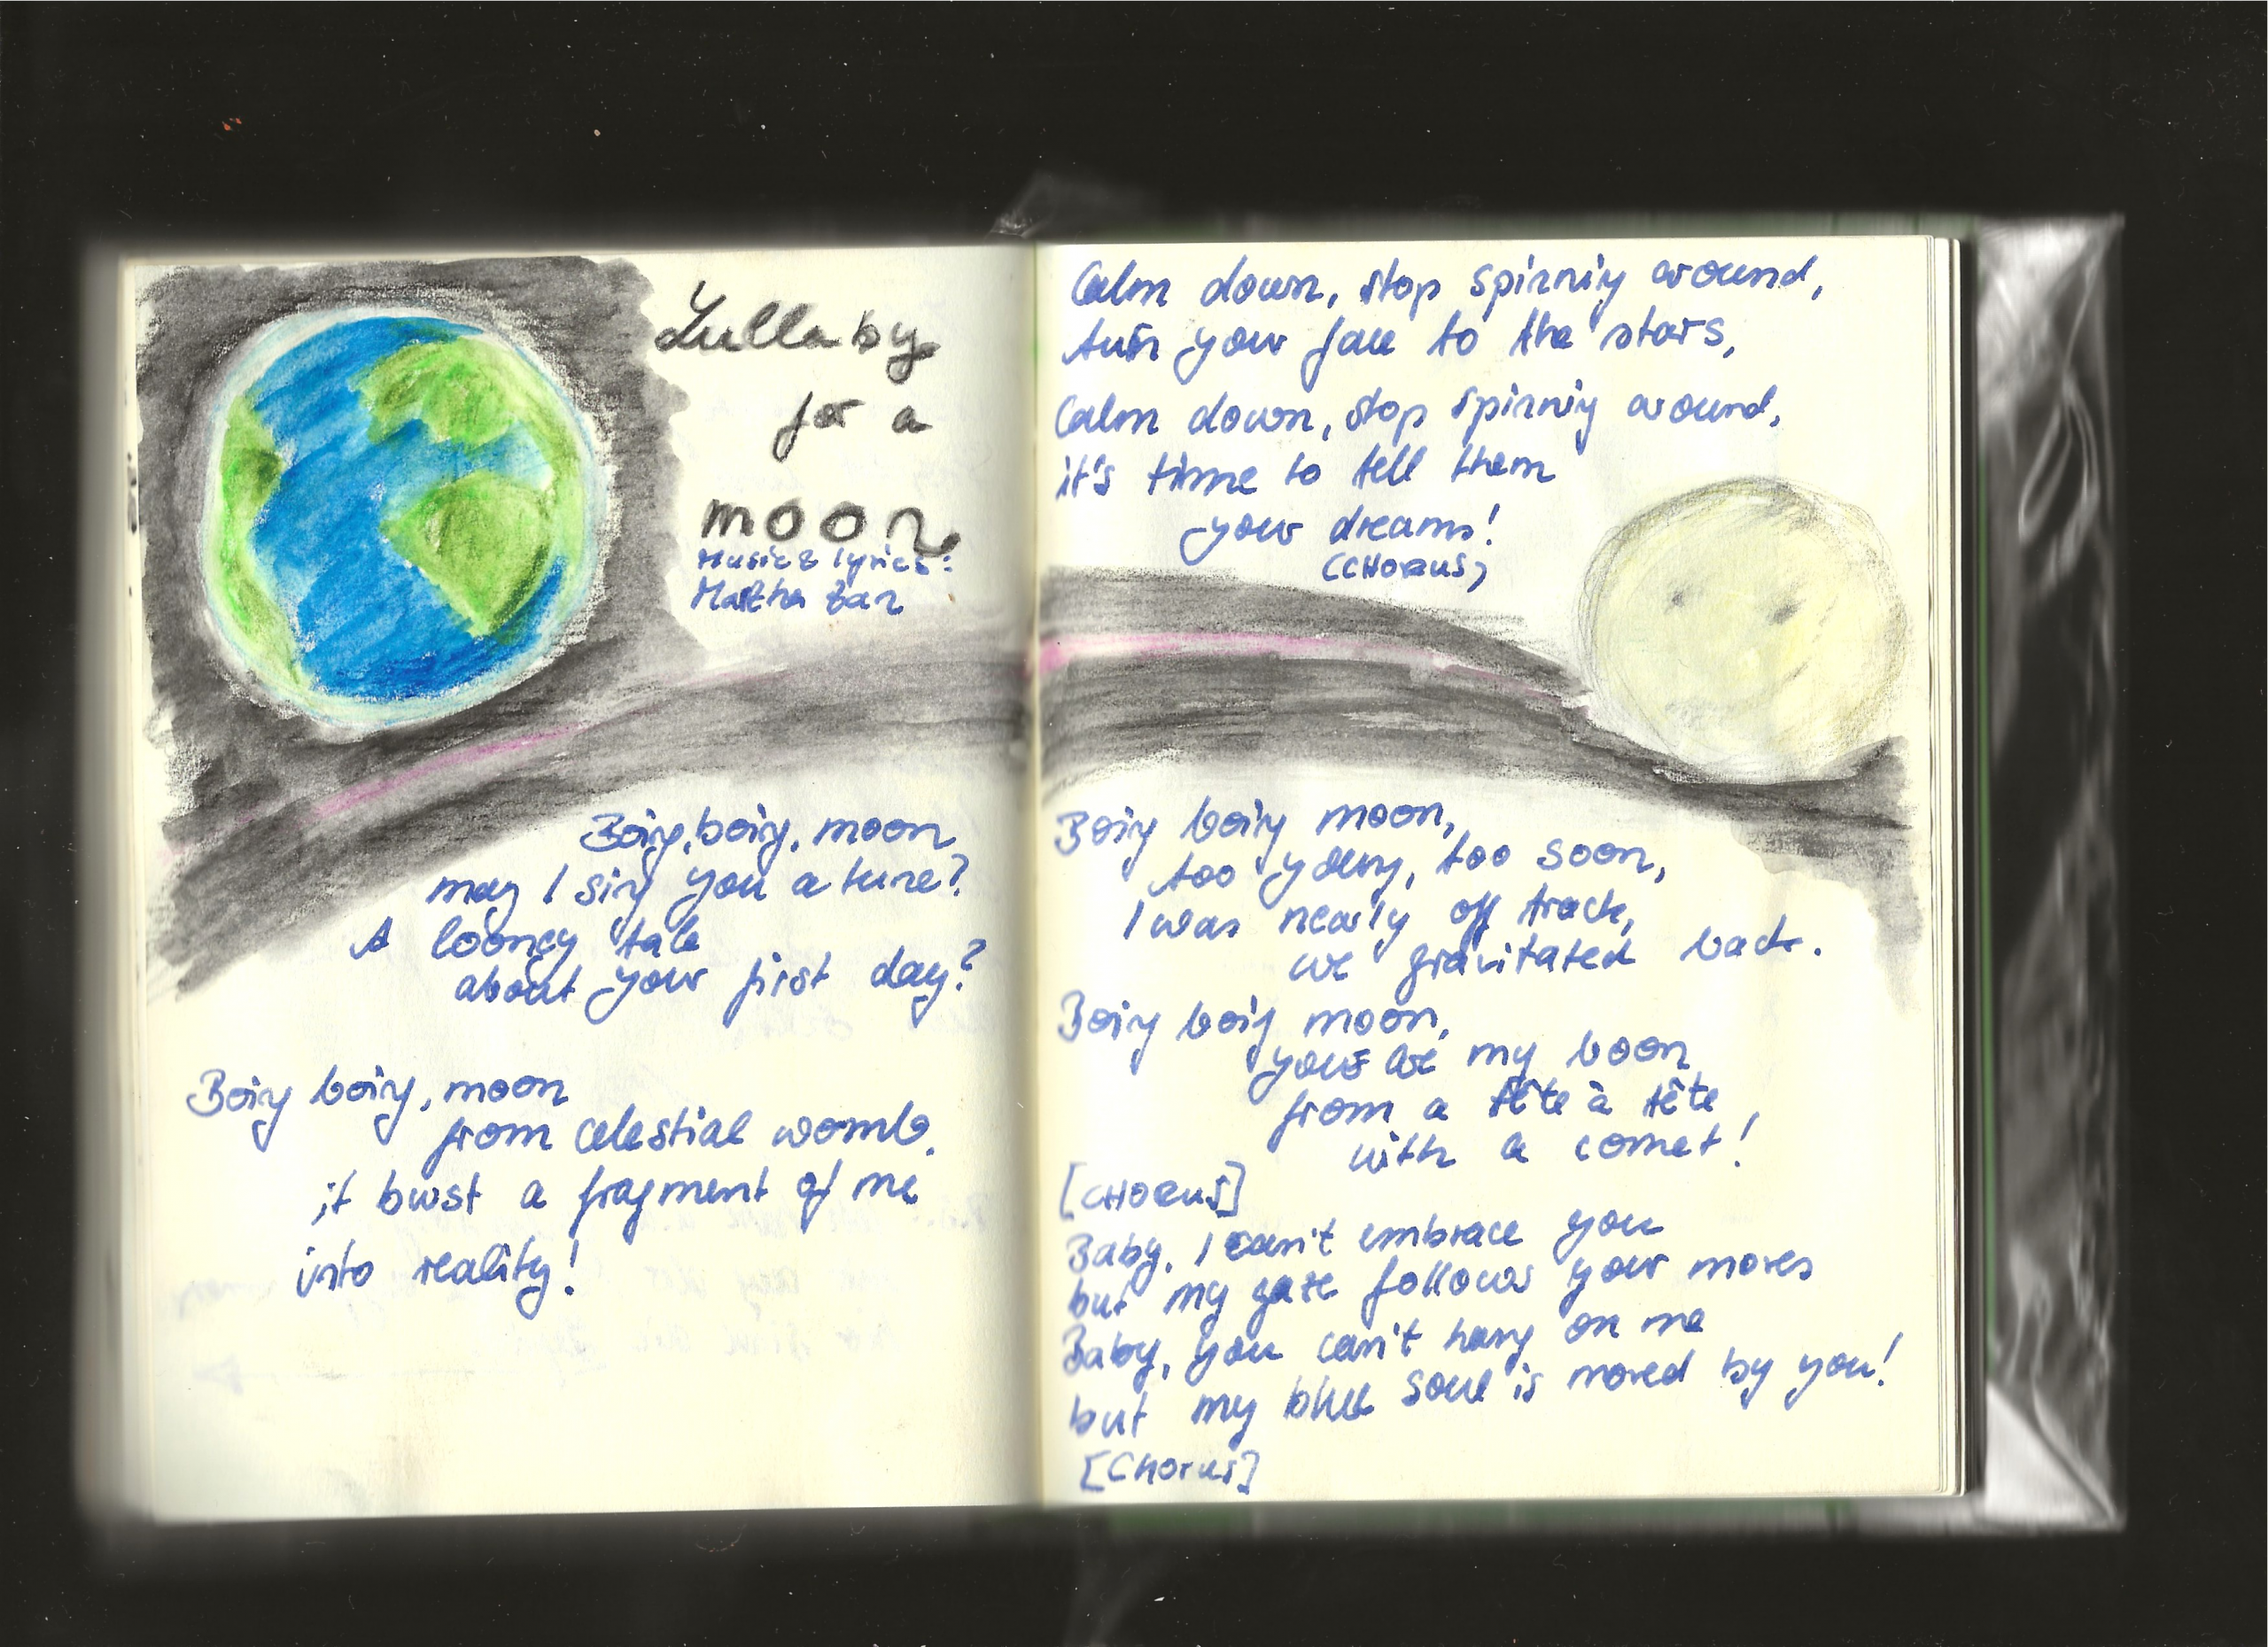 Lullaby
for a
moon
Music & lyrics:
Martha
Boing, boing, moon
may I sing you a tune?
A looney tale
about your first day?
Boing boing, moon
from celestial womb,
it burst a fragment of me
into reality!
Calm down, stop spinning around,
turn your face to the stars,
Calm down, stop spinning around,
it's time to tell them
your dreams!
(CHORUS)
Boing boing moon,
too young, too soon,
I was nearly off track,
we gravitated back.
Boing boing moon,
you are my boon
from a tête à tête
with a comet!
[CHORUS]
Baby, I can't embrace you
but my gaze follows your moves
Baby, you can't hang on me
but my blue soul is moved by you!
[CHORUS]